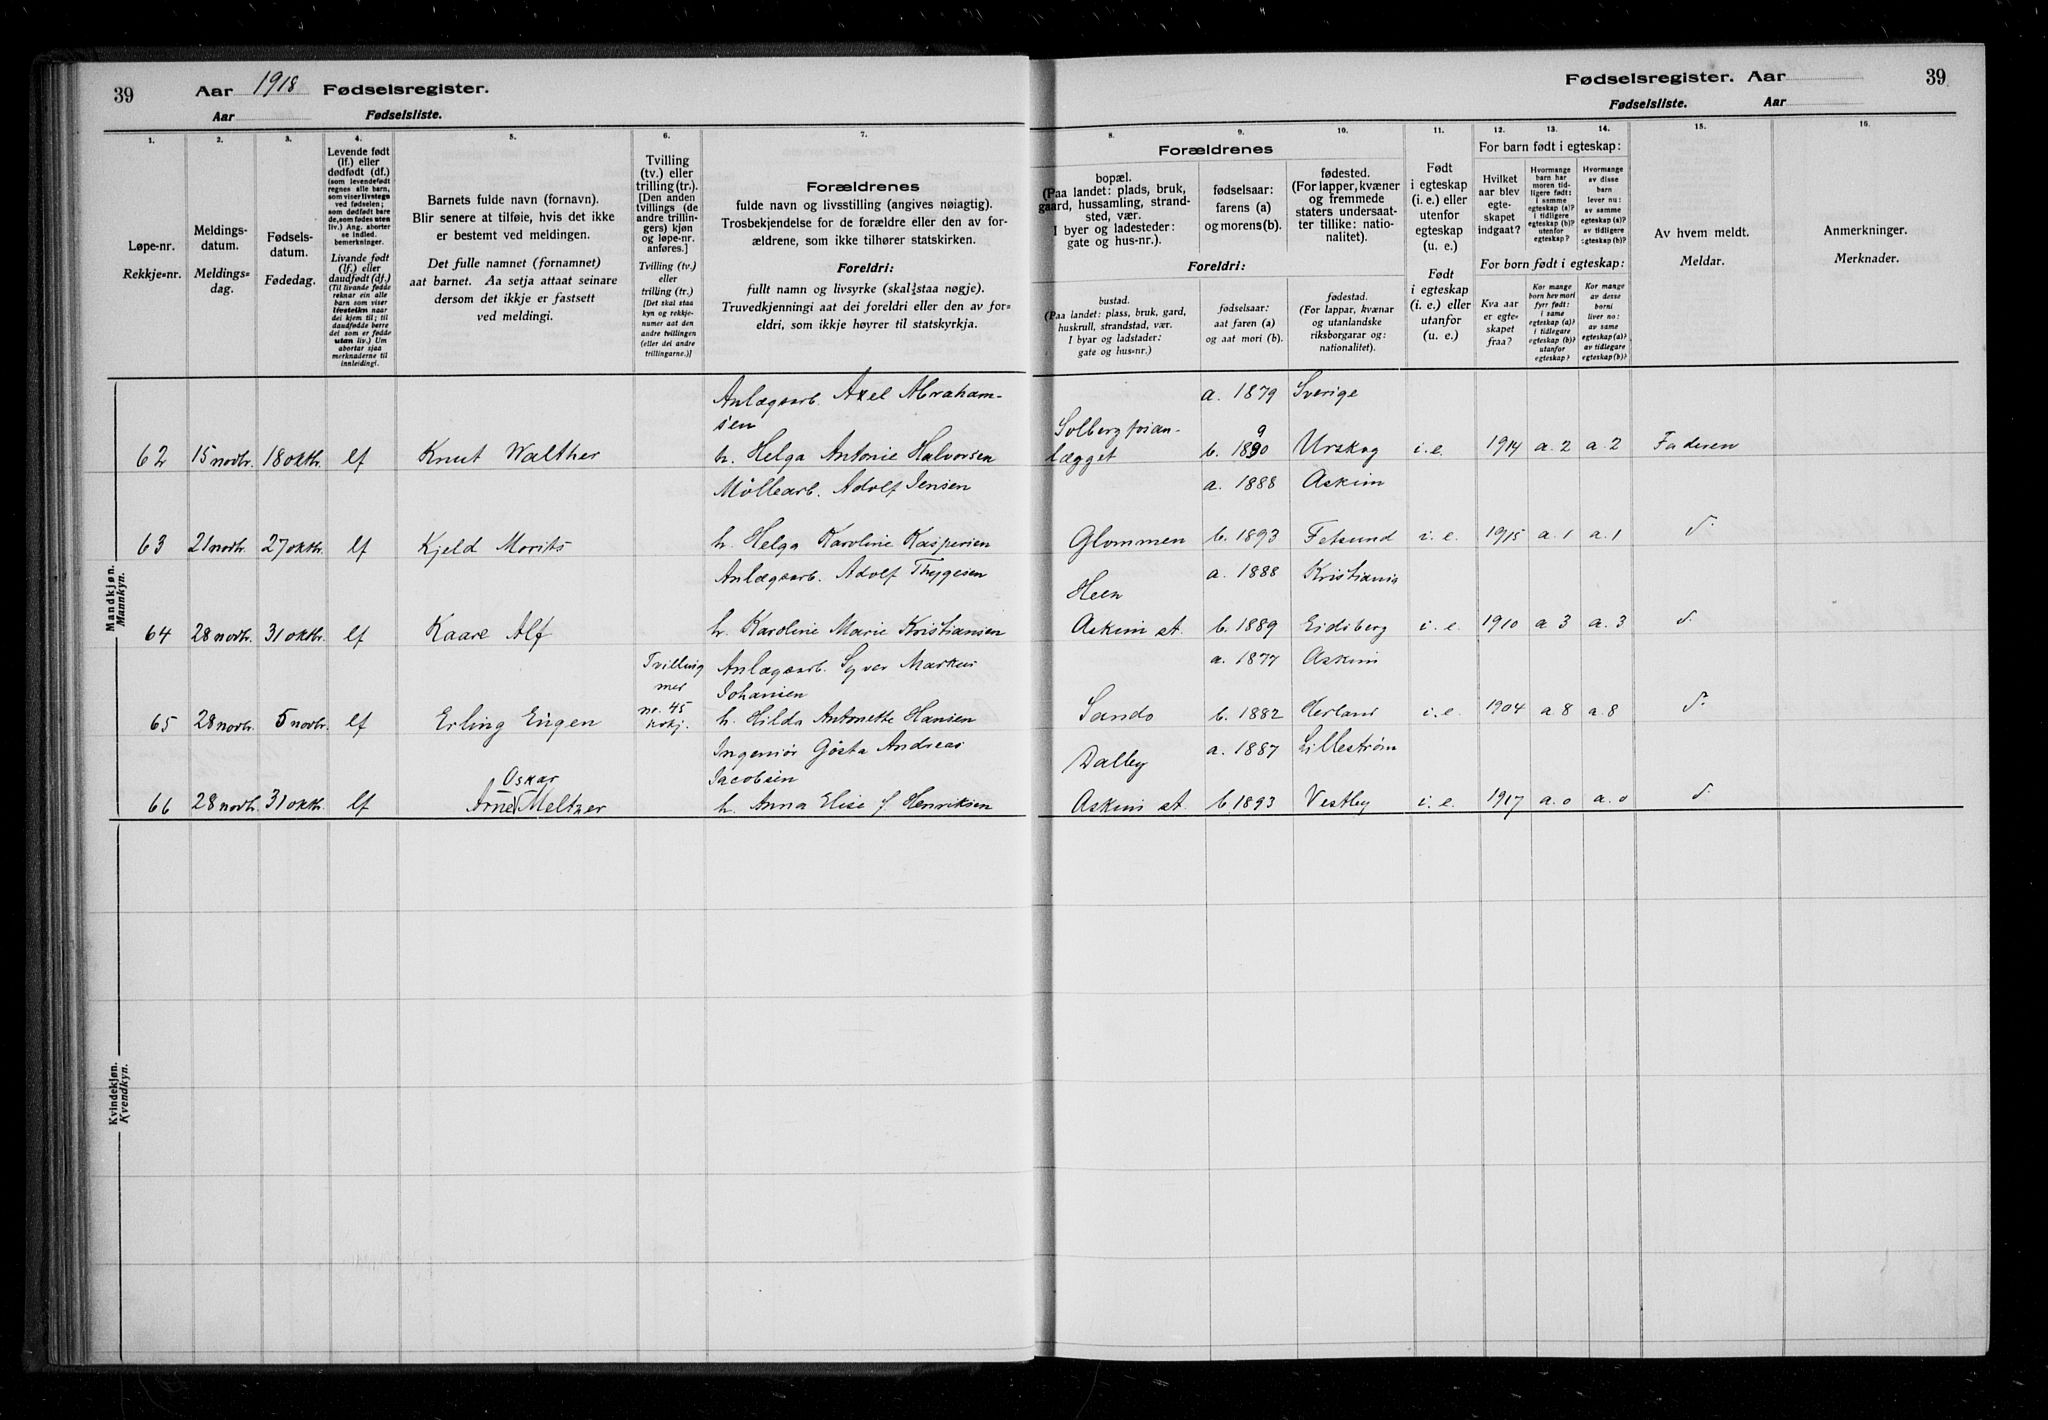 39 Aar 1918 Fødselsregister.
Aar Fødselsliste.
Fødselsregister. Aar 39
Fødselsliste. Aar
1. 2. 3. 4. 5. 6. 7. 8. 9. 10. 11. 12. 13. 14. 15. 16.
Løpe-nr.
Rekkje=nr.
Meldings-
datum.
Meldings=
dag.
Fødsels-
datum.
Fødedag.
Levende født
(lf.) eller
dødfødt (df.)
(som levendefødt
regnes alle barn,
som viser livstegn
ved fødselen;
som dødfødt bare
de, som fødes uten
liv.) Ang. aborter
se indled.
bemerkninger.
Livande født
(lf.) eller
daudfødt (df.)
(Til livande fødde
reknar ein alle
barn som viser
livsteikn naar
dei kjem til; til
daudfødde berre
dei som er fødde
utan liv.) Um
abortar sjaa
merknaderne til
innleidingi.
Barnets fulde navn (fornavn).
Blir senere at tilføie, hvis det ikke
er bestemt ved meldingen.
Det fulle namnet (fornamnet)
aat barnet. Aa setja attaat seinare
dersom det ikkje er fastsett
ved meldingi.
Tvilling
(tv.) eller
trilling (tr.).
[Den anden
tvillings (de
andre trillin-
gers) kjøn
og løpe-nr.
anføres.]
Tvilling (tv.)
eller
trilling (tr.)
[Det skal staa
kyn og rekkje-
numer aat den
andre tvillingen
(eller dei andre
trillingarne.)]
Forældrenes
fulde navn og livsstilling (angives nøiagtig).
Trosbekjendelse for de forældre eller den av for-
ældrene, som ikke tilhører statskirken.
Foreldri:
fullt namn og livsyrke (skal staa nøgje).
Truvedkjenningi aat dei foreldri eller den av for=
eldri, som ikkje høyrer til statskyrkja.
Forældrenes
bopæl.
(Paa landet: plads, bruk,
gaard, hussamling, strand-
sted, vær.
I byer og ladesteder:
gate og hus-nr.).
fødselsaar:
farens (a)
og morens (b).
fødested.
(For lapper, kvæner
og fremmede
staters undersaat-
ter tillike: natio-
nalitet).
Foreldri:
bustad.
(Paa landet: plass, bruk, gard,
huskrull, strandstad, vær.
I byar og ladstader:
gate og hus=nr.)
fødselsaar:
aat faren (a)
og aat mori (b).
fødestad.
(For lappar, kvænar
og utanlandske
riksborgarar og:
nationalitet).
Født
i egteskap
(i. e.) eller
utenfor
egteskap
(u. e.)
Født
i egteskap
(i. e.) eller
utanfor
(u. e.)
For barn født i egteskap:
Hvilket
aar blev
egte-
skapet
indgaat?
Hvormange
barn har
moren tid-
ligere født:
i samme
egteskap (a)?
i tidligere
egteskap (b)?
utenfor
egteskap?
Hvormange
av disse
barn
lever nu:
av samme
egteskap (a)?
av tidligere
egteskap (b)?
For born født i egteskap:
Kva aar
er egte-
skapet
fraa?
Kor mange
born hev mori
fyrr født:
i same
egteskap (a)?
i tidlegare
egteskap (b)?
utanfor
egteskap?
Kor mange
av desse
borni
liver no:
av same
egteskap (a)?
av tidlegare
egteskap (b)?
Av hvem meldt.
Meldar.
Anmerkninger.
Merknader.
Mandkjøn.
Mannkyn.
Anlægsarb. Axel Abraham- a. 1879 Sverige
sen Solbergfosan- 9
62 15 novbr. 18 oktbr. lf Knut Walther h. Helga Antonie Halvorsen lægget b. 1890 Urskog i. e. 1914 a. 2 a. 2 Faderen
Møllearb. Adolf Jensen a. 1888 Askim
63 21 novbr. 27 oktbr. lf Kjeld Morits h. Helga Karoline Kaspersen Glommen b. 1893 Fetsund i. e. 1915 a. 1 a. 1 d.
Anlægsarb. Adolf Thygesen Heen a. 1888 Kristiania
64 28 novbr. 31 oktbr. lf Kaare Alf h. Karoline Marie Kristiansen Askim st. b. 1889 Eidsberg i. e. 1910 a 3 a. 3 d.
Tvilling Anlægsarb. Syver Markus a. 1877 Askim
mer Johansen
65 28 novbr. 5 novbr. lf Erling Eugen nr. 45 kvkj. h. Hilda Antonette Hansen Sando b. 1882 Herland i. e. 1904 a 8 a. 8 d.
Ingeniør Gøsta Andreas Dalby a. 1887 Lillestrøm
Oskar Jacobsen
66 28 novbr. 31 oktbr. lf Arne Meltzer h. Anna Elise f Henriksen Askim st. b. 1893 Vestby i. e. 1917 a. 0 a. 0 d.
Kvindekjøn.
Kvendkyn.